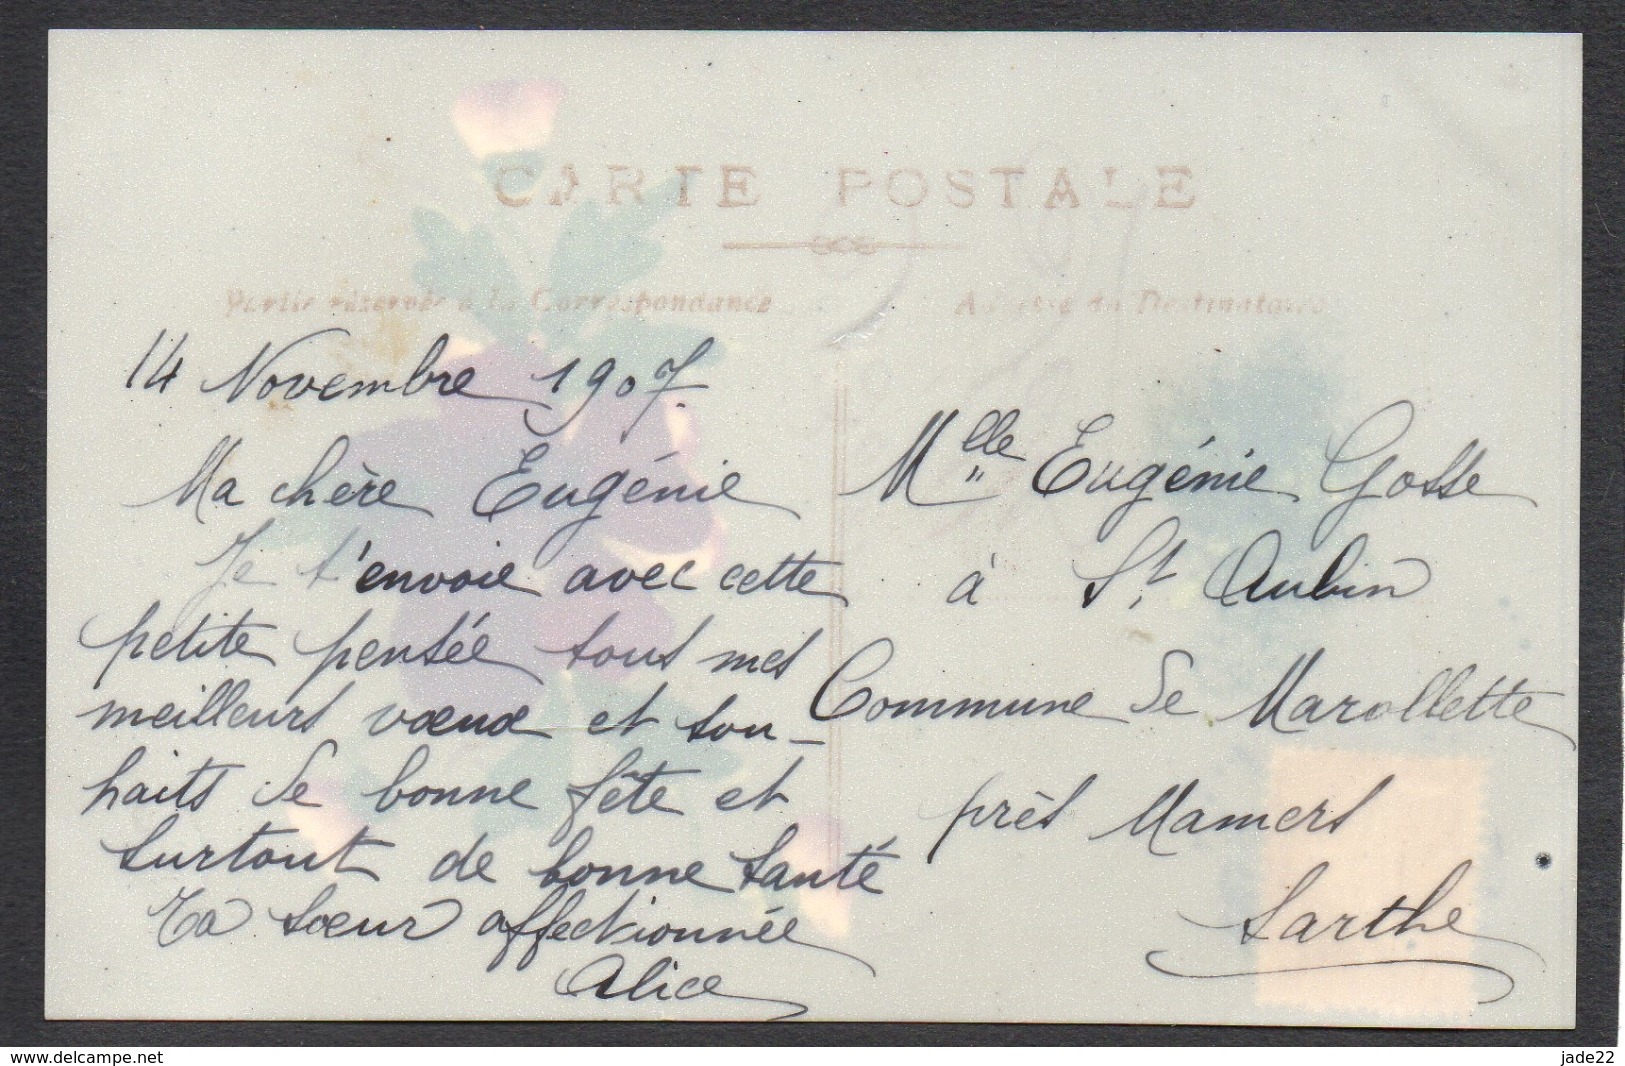 CARTE POSTALE
Partie réservée à la Correspondance
Adresse du Destinataire
14 Novembre 1907.
Ma chère Eugénie
Je t'envoie avec cette
petite pensée tous mes
meilleurs vœux et sou-
haits de bonne fête et
surtout de bonne santé
Ta sœur affectionnée
Alice
Mlle Eugénie Gosse
à St. Aubin
Commune de Marollette
près Mamers
Sarthe
www.delcampe.net
jade22